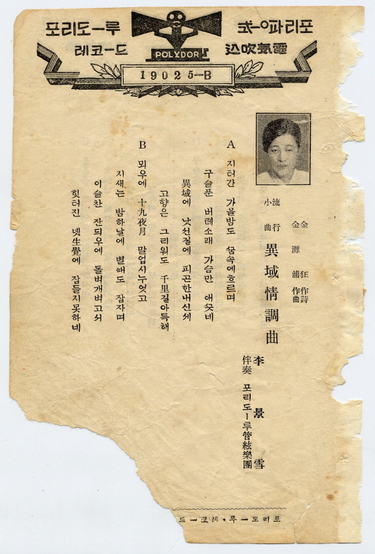 포리도ー루
레코ー드
電氣吹込
POLYDOR
19025-B
金 狂作詩
金 源 浦作曲
流行小曲 異域情調曲
李景雪
伴奏 포리도ー루管絃樂團
A 지러간 가을밤도 꿈속에흐르며
구슬푼 버레소래 가슴만 애끗네
異域에 낫선정에 피곤한내신세
고향은 그리워도 千里길아득해
B 뫼우에 十九夜月 말업시누엇고
지새는 밤하날에 별해도 잠자며
이슬찬 잔듸우에 돌벽개벼고쉬
헛터진 녯生覺에 잠들지못하네
포리도ー루・레코ー드